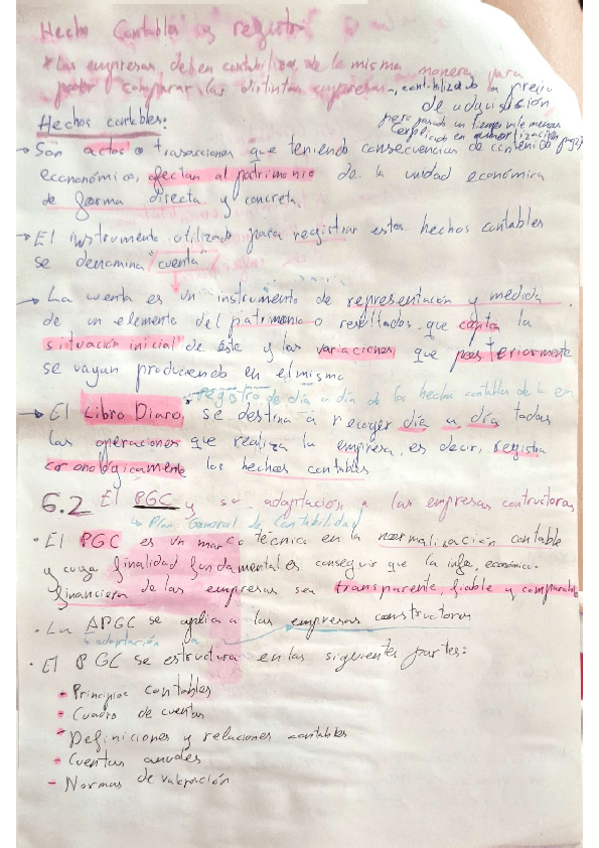 Hecho Contable y registro
* Las empresas deben contabilizar de la misma manera para
poder comparar las distintas empresas, contabilizado en precio
de adquisición
pero pasado un tiempo
Hechos contables:
→ Son actos o transacciones que teniendo consecuencias de contenido
econonómico, afectan al patrimonio de la unidad económica
de forma directa y concreta.
→ El instrumento utilizado para registrar estos hechos contables
se denomina "cuenta"
→ La cuenta es un instrumento de representación y medida
de un elemento del patrimonio o resultados que capta la
situación inicial de éste y las variaciones que posteriormente
se vayan produciendo en el mismo
registro de día a día de los hechos contables de la em
→ El Libro Diaro, se destina a recoger día a día todas
las operaciones que realiza la empresa, es decir, registra
cronológicamente los hechos contables
6.2 El PGC y su adaptación a las empresas contructoras
Plan General de Contabilidad
• El PGC es un marco técnico en la normalización contable
y cuya finalidad fundamental es conseguir que la info. económico-
financiera de las empresas sea transparente, fiable y comparable
• La APGC se aplica a las empresas constructoras
adaptación
• El PGC se estructura en las siguientes partes:
- Principios contables
- Cuadro de cuentas
- Definiciones y relaciones contables
- Cuentas anuales
- Normas de valoración